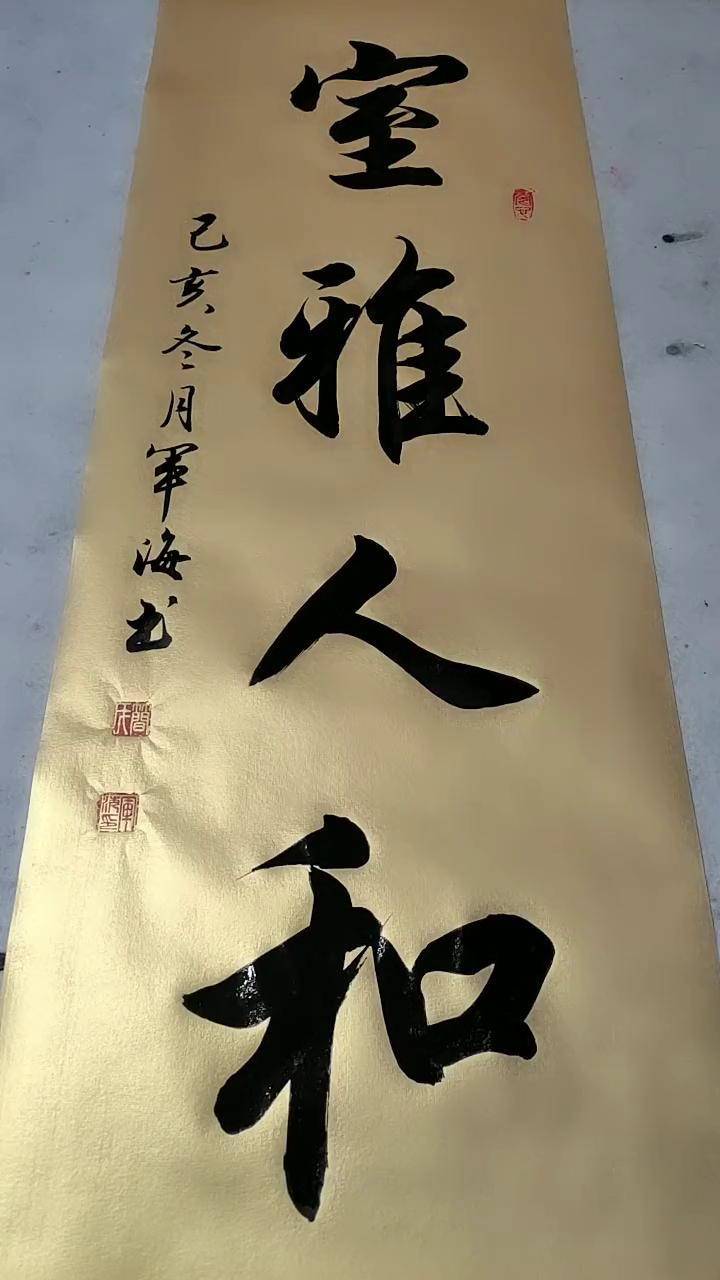 室雅人和
己亥冬月軍海书